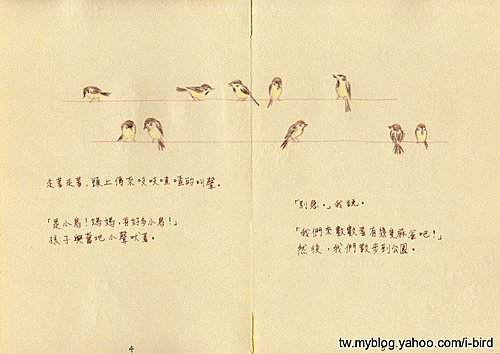 走著走著，頭上傳來吱吱喳喳的叫聲。
「是小鳥！媽媽，有好多小鳥！」
孩子興奮地小聲吠著。
「別急。」我說。
「我們來數數看有幾隻麻雀吧！」
然後，我們散步到公園。
4
tw.myblog.yahoo.com/i-bird